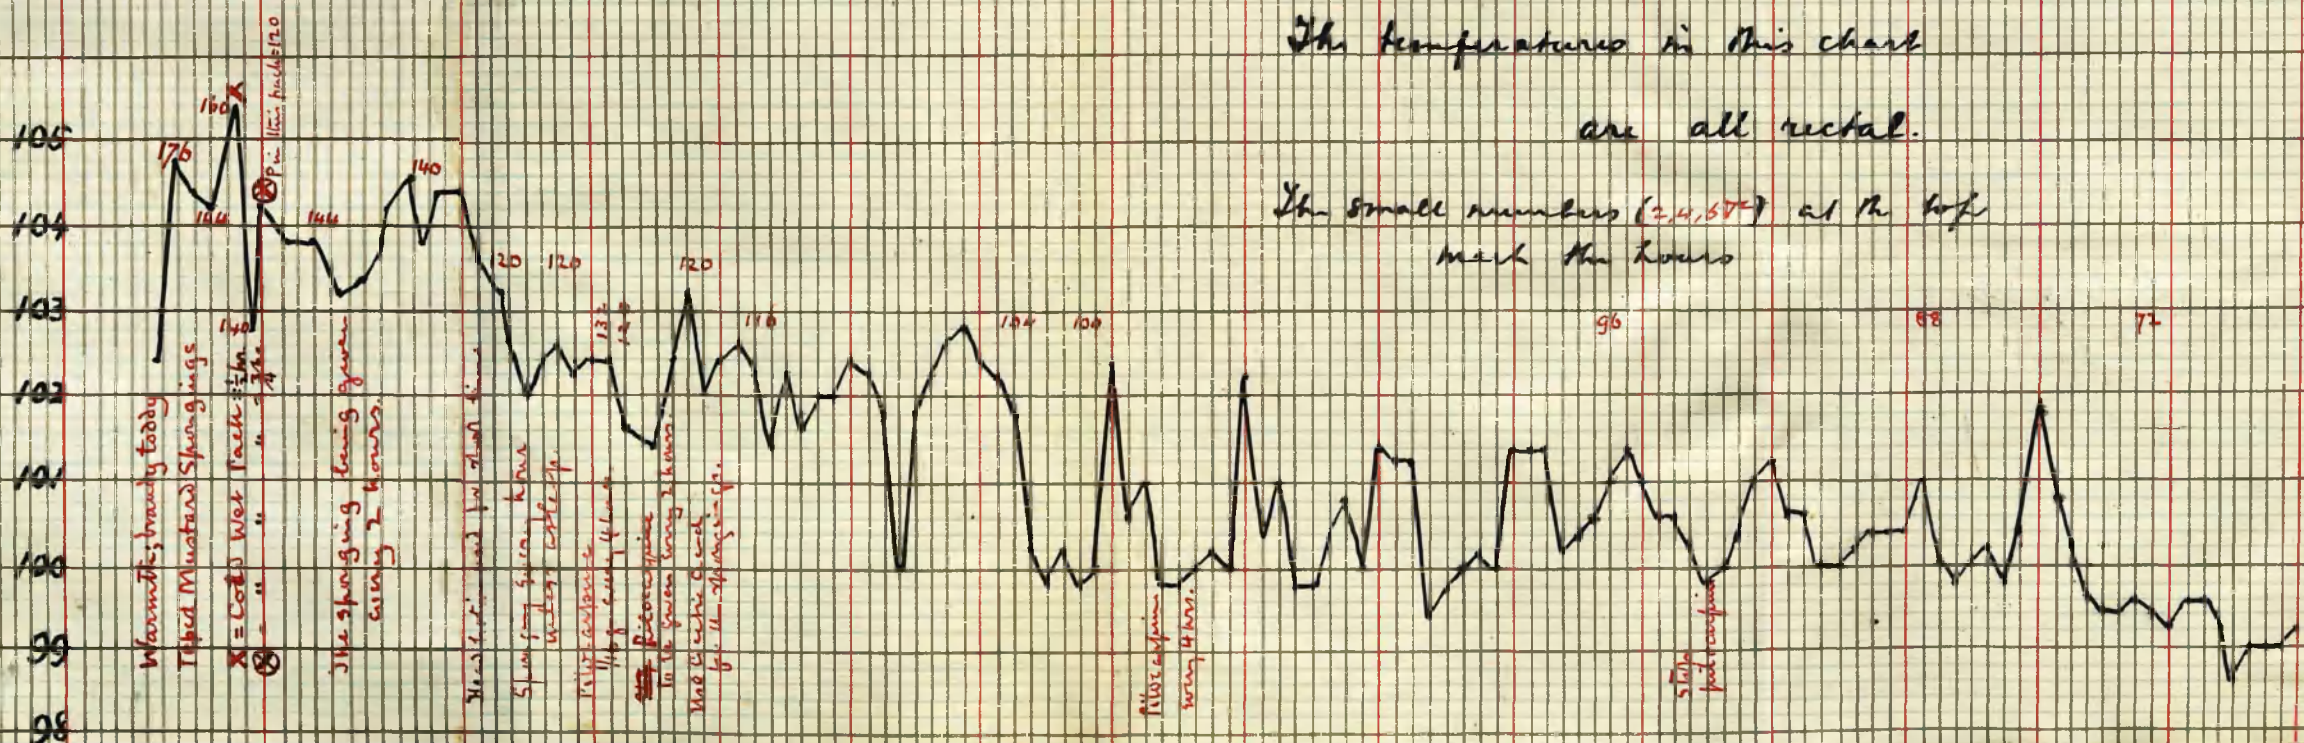 The temperatures in this chart
are all rectal.
The small numbers (2,4,6 &c) at the top
mark the hours
105
104
103
102
101
100
99
98
176
144
160 X
140
⊗ p in this pack=120
144
140
120
120
132
120
120
116
104
100
96
88
72
Warmth; brandy toddy
Tepid Mustard Spongings
X = Cold Wet Pack = ½ hr.
⊗ = " " " = ¾ hr
The sponging being given
every 2 hours.
Sponging every hour
unless asleep
Pilocarpine
1/10 g every 4 hours
Pilocarpine
to be given every 2 hours.
Use Acetic Acid
for the spongings.
Pilocarpine
every 4 hrs.
Stop
pilocarpine